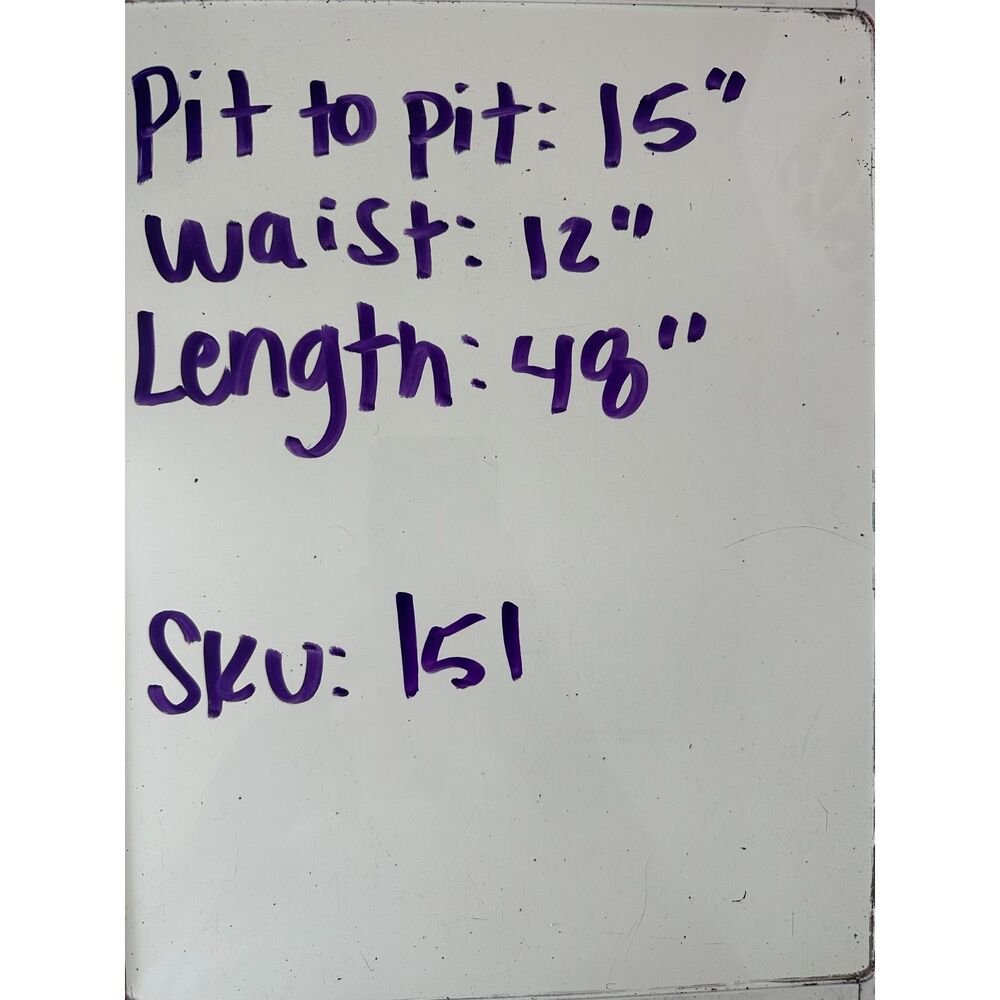 Pit to pit: 15"
Waist: 12"
Length: 48"
SKU: 151